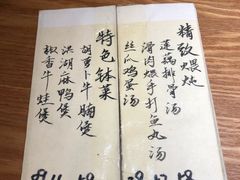 精致煨炖
莲藕排骨汤
滑肉煨手打鱼丸汤
丝瓜鸡蛋汤
特色钵菜
胡萝卜牛腩煲
洪湖麻鸭煲
椒香牛蛙煲